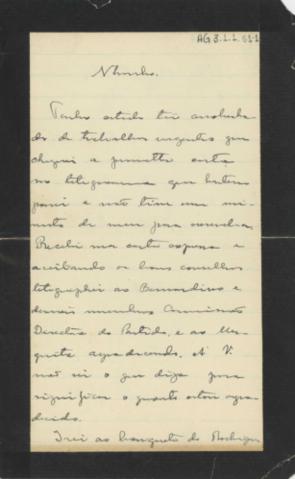 AG 3.1.1.51-1
Nhonho.
Tenho estado tão assoberba-
do de trabalhos urgentes que
cheguei a prometter carta
no telegramma que hontem
passei e não tive um mi-
nuto de meu para escrever.
Recebi sua carta expressa e
aceitando os bons conselhos
telegraphei ao Bernardino e
demais membros Commissão
Directora do Partido, e ao Mes-
quita agradecendo. A V.
não sei o que diga para
significar o quanto estou agra-
decido.
Irei ao banquete do Rodrigues